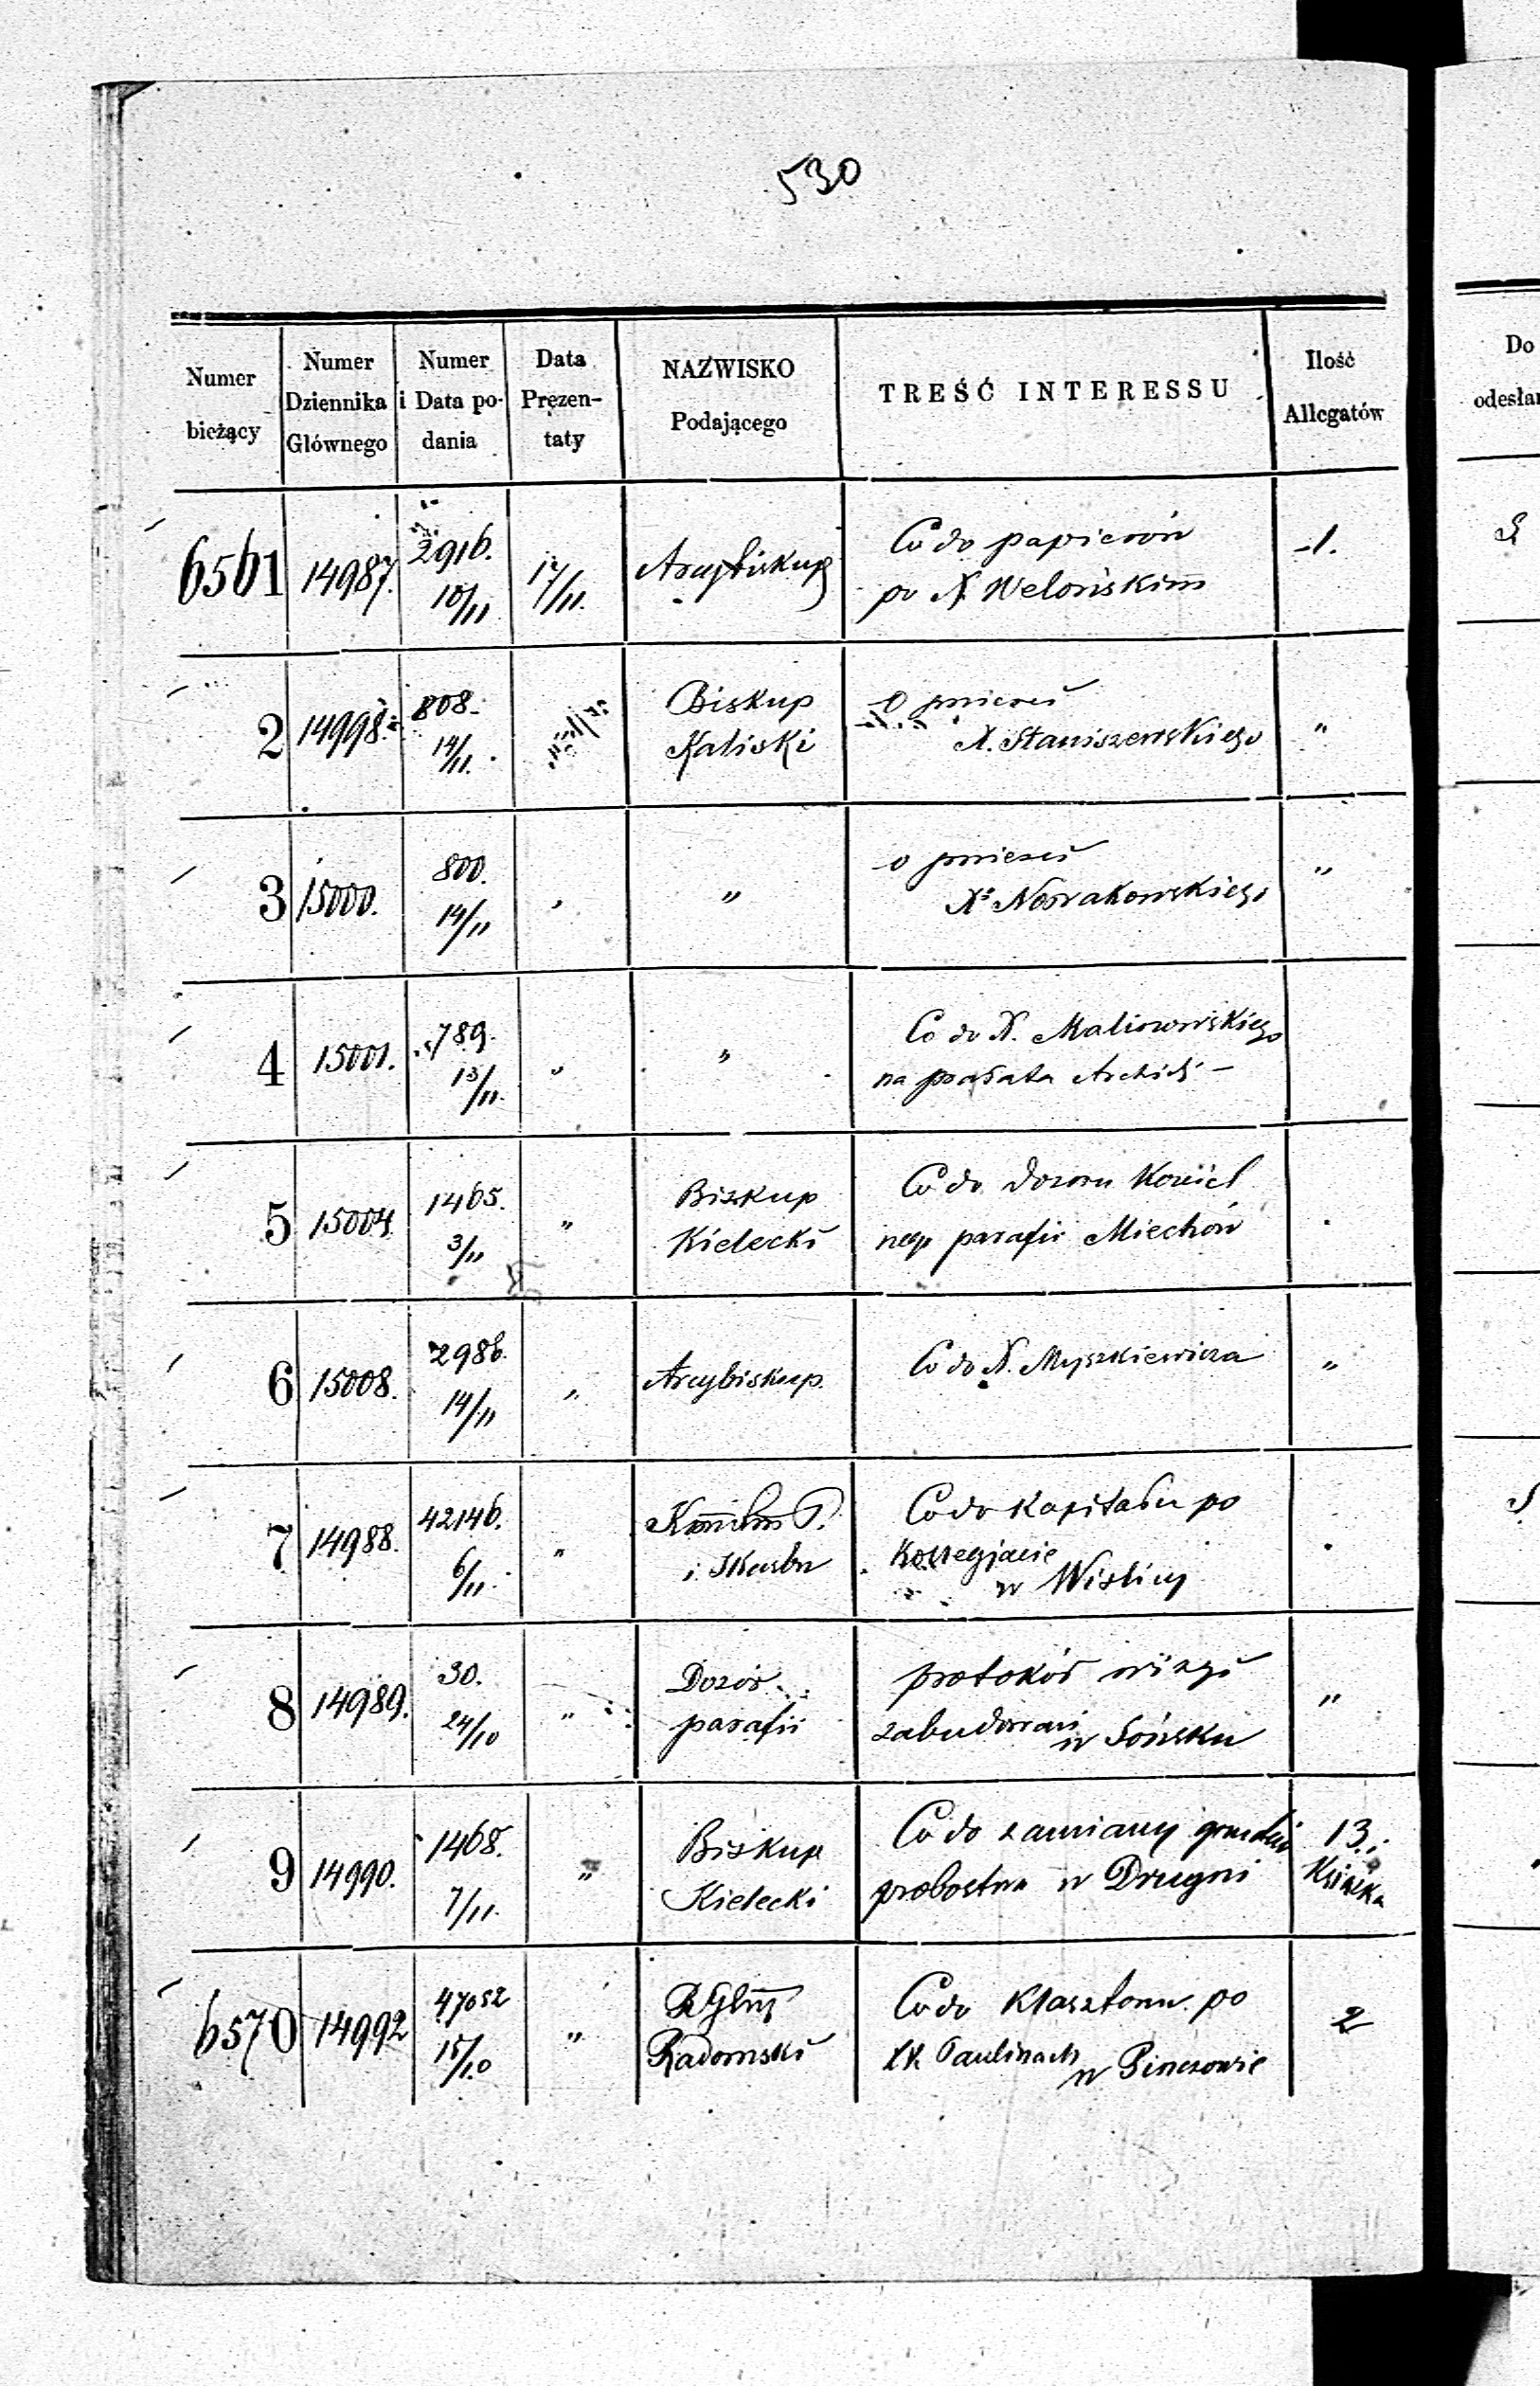 530
Numer bieżący | Numer Dziennika Głównego | Numer i Data podania | Data Prezentaty | NAZWISKO Podającego | TREŚĆ INTERESSU | Ilość Allegatów
Do
odesłan
6561 | 14987. | 2916. 10/11 | 17/11. | Arcybiskup | Co do papierów
po X. Welońskim | 1.
2 | 14998. | 808. 14/11. | Biskup Kaliski | O śmierci
X. Staniszewskiego | "
3 | 15000. | 800. 14/11 | " | " | o śmierci
Xa Nowakowskiego | "
4 | 15001. | 789. 13/11. | " | " | Co do X. Maliszewskiego
na prałata Archid. –
5 | 15004 | 1465. 3/11 | " | Biskup Kielecki | Co do dozoru Kościel
nego parafii Miechów
6 | 15008. | 2986. 14/11 | " | Arcybiskup. | Co do X. Myszkiewicza | "
7 | 14988. | 42146. 6/11. | " | i Skarbu | Co do Kapitału po
Kollegjacie
w Wiślicy
8 | 14989. | 30. 24/10 | " | Dozór parafii | protokół
zabudowań w Sońsku | "
9 | 14990. | 1468. 7/11. | " | Biskup Kielecki | Co do zamiany gruntów
probostwa w Drugni | 13. i Książka
6570 | 14992 | 47052 15/10 | " | Radomski | Co do Klasztoru po
XX. Paulinach w Pinczowie | 2